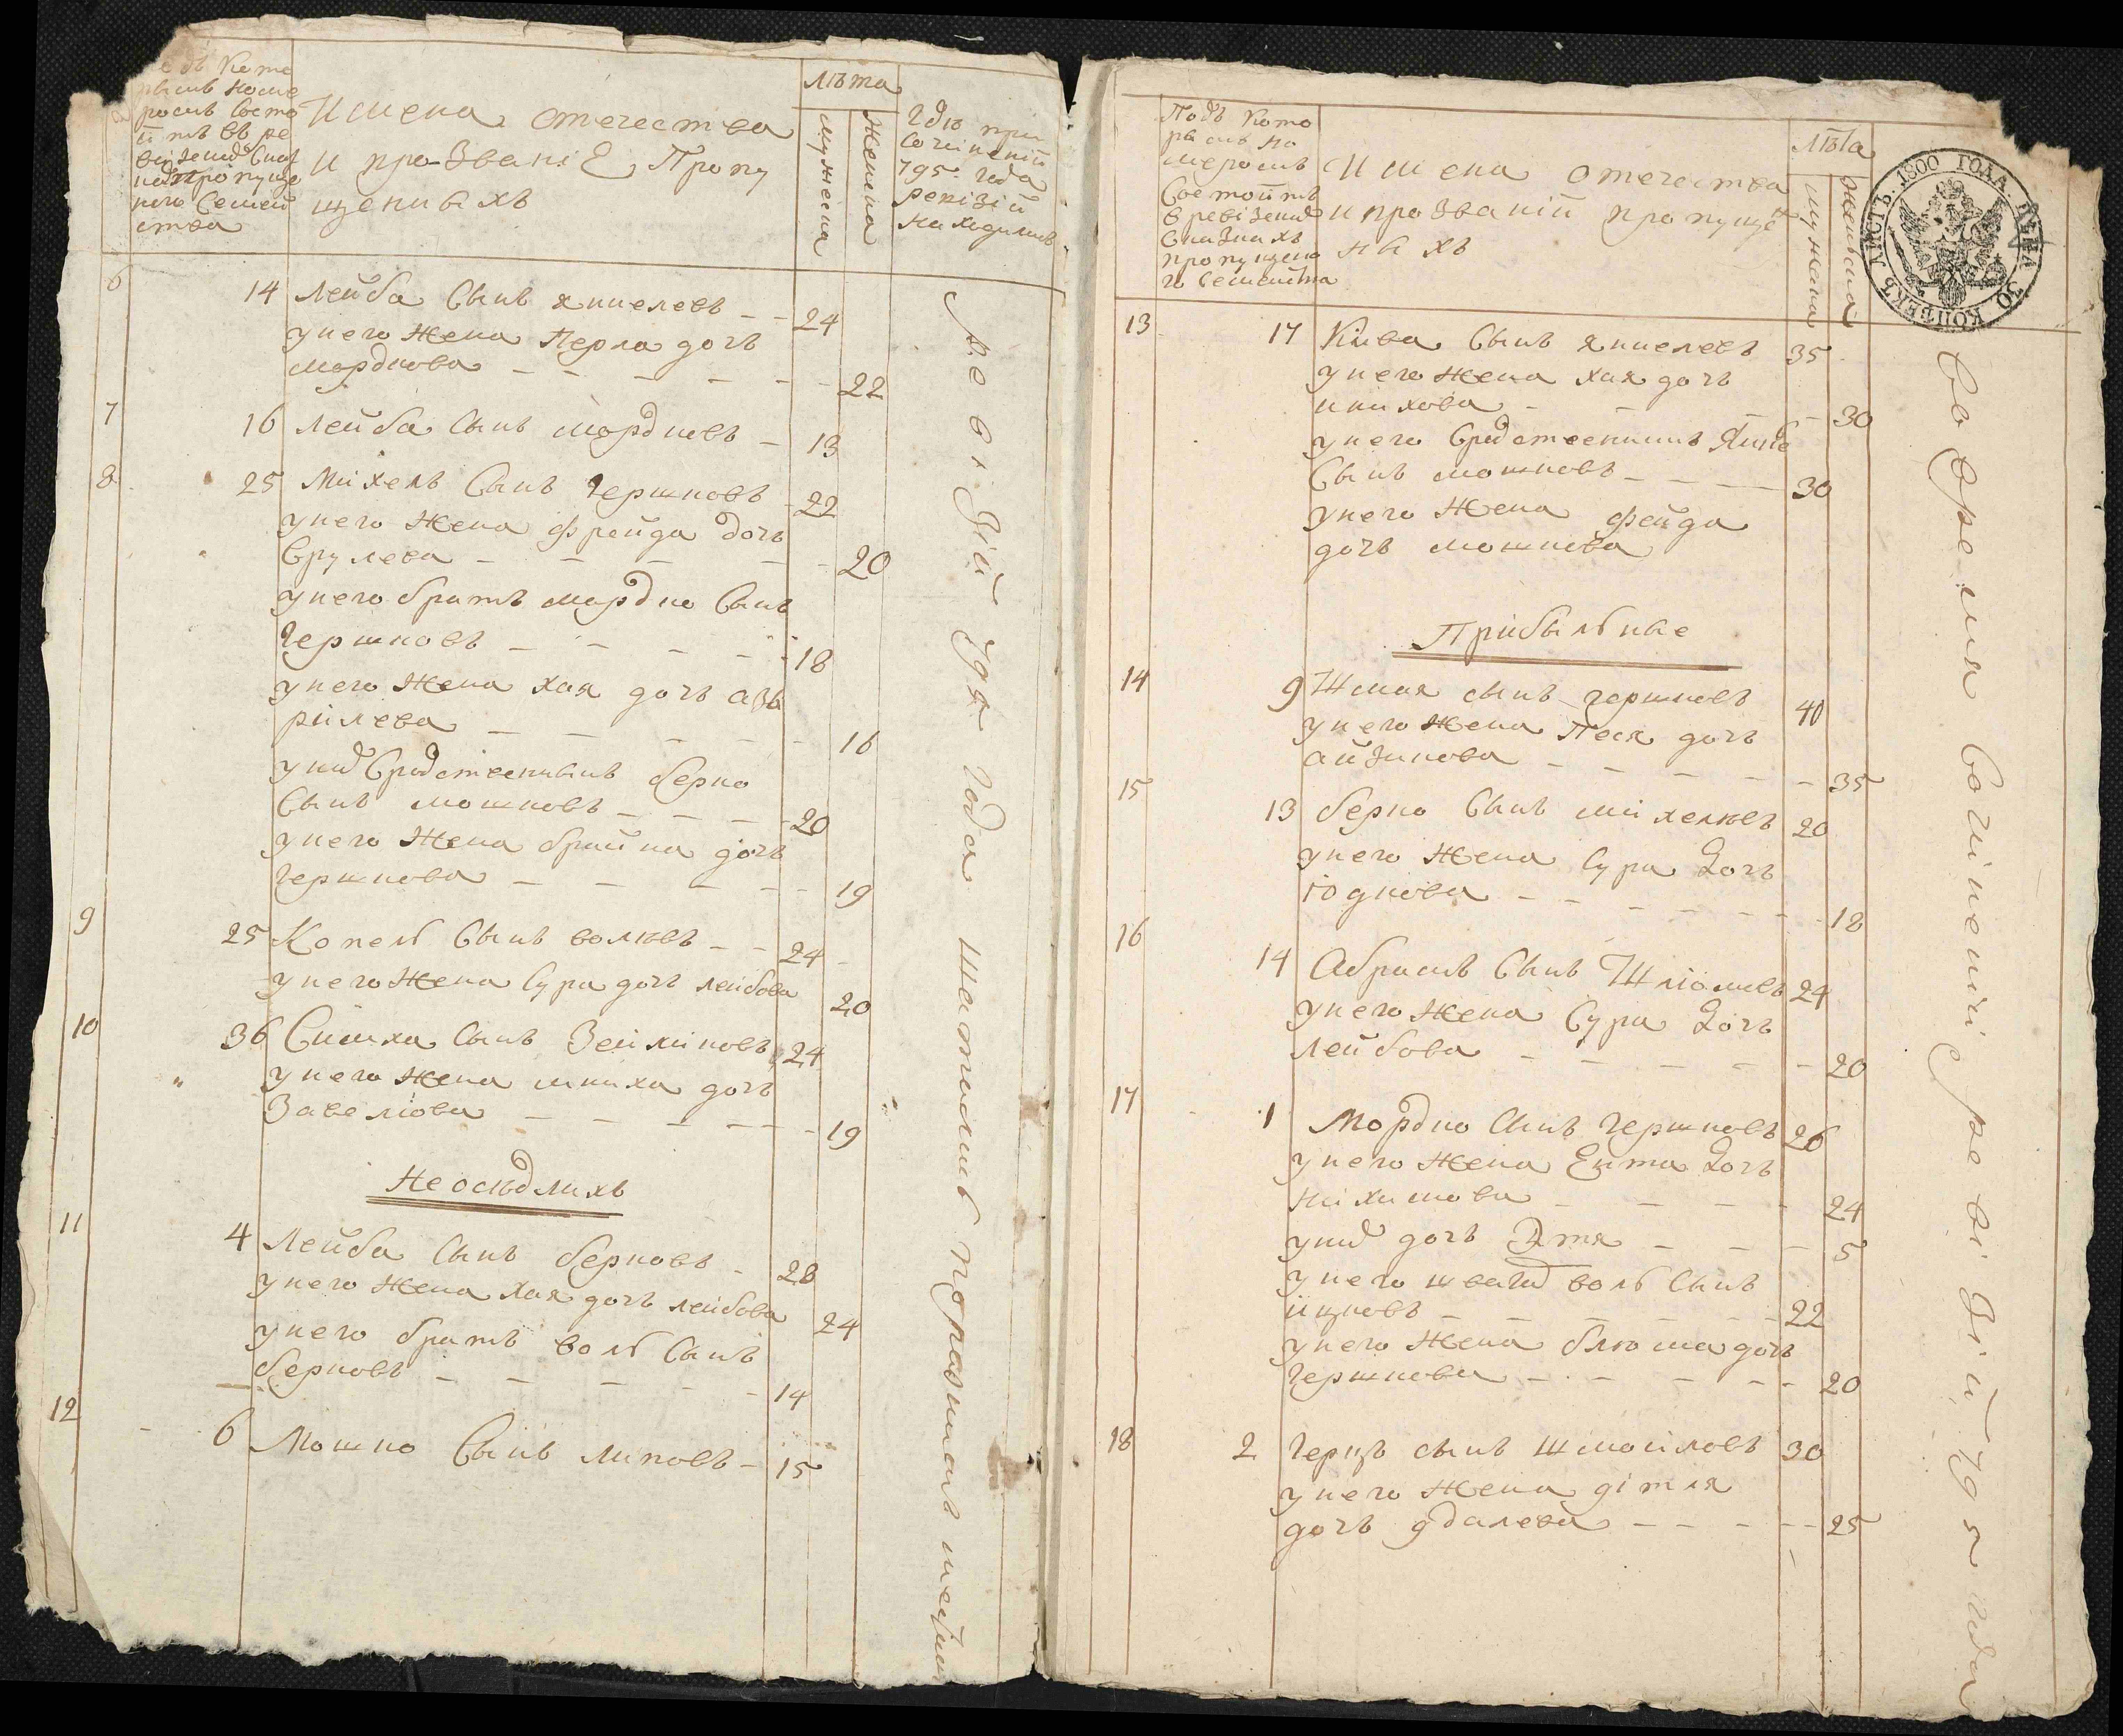 подъ кото
рымъ номе
ромъ Состо
итъ въ ре
пропуще
наго Семей
ства
Имена отечества
и прозваніе Пропу
щеныхъ
лѣта
мужеска
женска
Гдѣ при
Сочиненіи
795 года
ревізіи
находились
6 14 Лейба Сынъ янкелевъ 24
у него жена Перла дочъ
мордкова 22
7 16 лейба Сынъ мордковъ 13
8 25 Михель Сынъ гершковъ 22
у него жена фрейда дочъ
Срулева 20
у него братъ мордко Сынъ
гершковъ 18
у него жена хая дочъ азъ
рилева 16
у них Сродственникъ берко
Сынъ мошковъ 20
у него жена брайна дочъ
гершкова 19
9 25 Копель Сынъ волковъ 24
у него жена Сура дочъ лейбова 20
10 36 Симха Сынъ Зейликовъ 24
у него жена дочъ
Завелюва 19
Не оседлихъ
11 4 Лейба Сынъ берковъ 28
у него жена хая дочъ лейбова 24
у него братъ воль Сынъ
берковъ 14
12 6 Мошко Сынъ ликовъ 15
ревізіи 795 года шатались по разнымъ
Подъ Кото
рымъ но
меромъ
Состоитъ
в ревізкихъ
Сказкахъ
пропущено
го Семейства
Имена отечества
и прозваніи пропущен
ныхъ
лѣта
мужеска
женска
ЛИСТЪ. 1800 ГОДА. ЦѢНА 30 КОПѢЕКЪ
13 17 Кива Сынъ янкелевъ 35
у него жена хая дочъ
ицкохова 30
у него Сродственникъ
Сынъ мошковъ 30
у него жена фейга
дочъ мошкова
Прибыльные
14 9 Шмая сынъ гершковъ 40
у него жена Песя дочъ
айзикова 35
15 13 берко Сынъ михелювъ 20
у него жена Сура дочъ
юдкова 18
16 14 Абрамъ Сынъ Шліомивъ 24
у него жена Сура дочъ
лейбова 20
17 1 Мордко Сынъ гершковъ 26
у него жена Ента дочъ
нихимова 24
у них дочъ Этя 5
у него швагер воль Сынъ
ицковъ 22
у него жена блюма дочъ
гершкова 20
18 2 герцъ сынъ шмойловъ 30
у него жена дітля
дочъ удалева 25
Во время Сочіненіи ревізіи 795 года